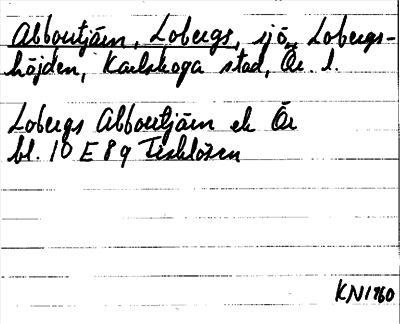 Abborrtjärn, Lobergs, sjö, Lobergs-
höjden, Karlskoga stad, Ör. l.
Lobergs Abborrtjärn ek Ör
bl. 10 E 8 g
KN1960